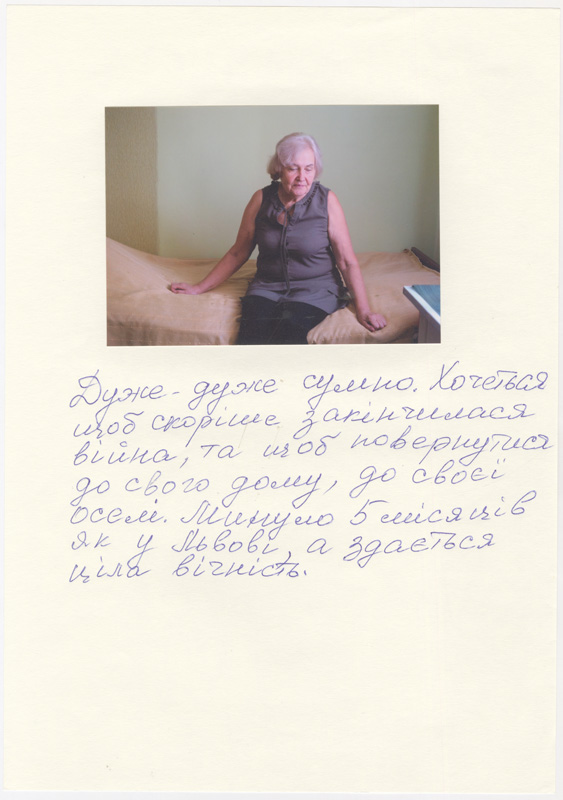 Дуже-дуже сумно. Хочеться
щоб скоріше закінчилася
війна, та щоб повернутися
до свого дому, до своєї
оселі. Минуло 5 місяців
як у Львові, а здається
ціла вічність.